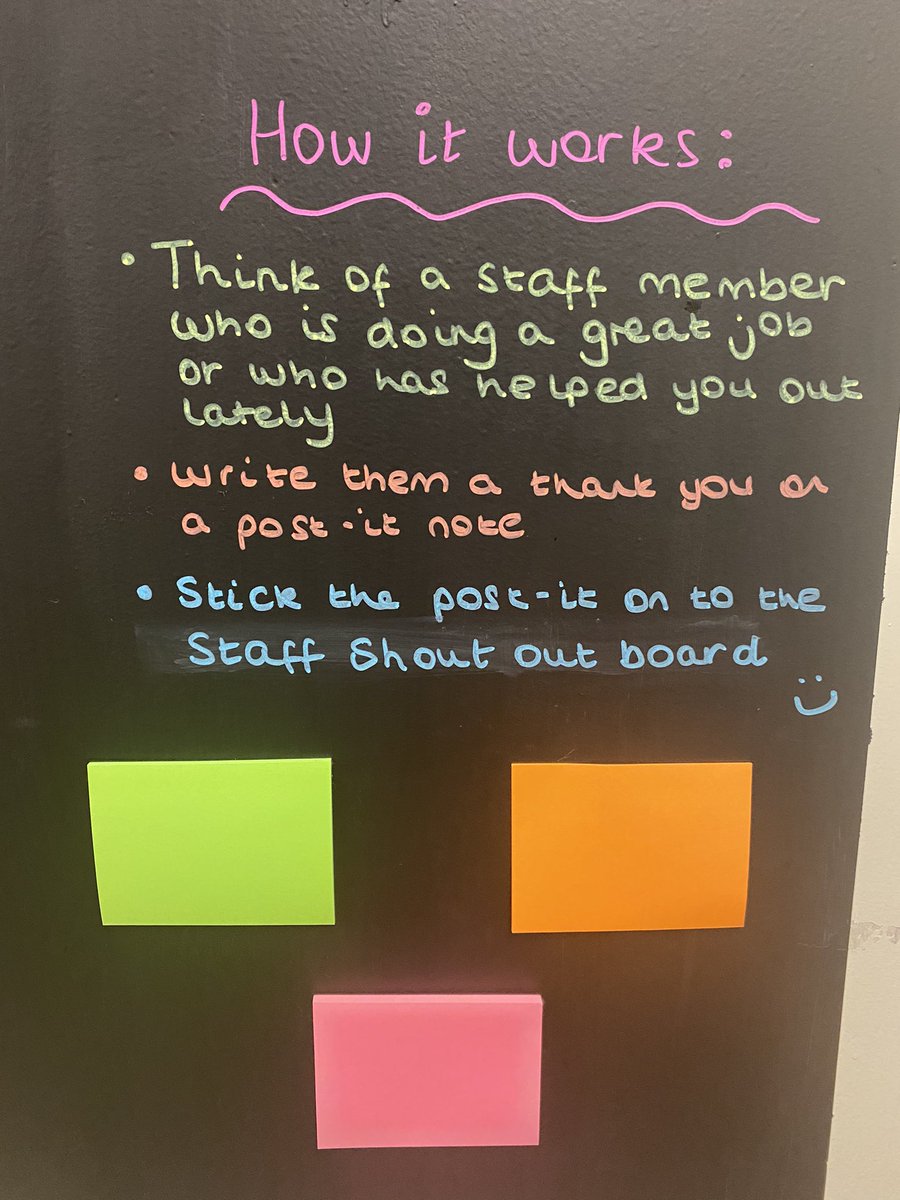 How it works:
• Think of a staff member
who is doing a great job
or who has helped you out
lately
• Write them a thank you on
a post-it note
• Stick the post-it on to the
Staff Shout out board